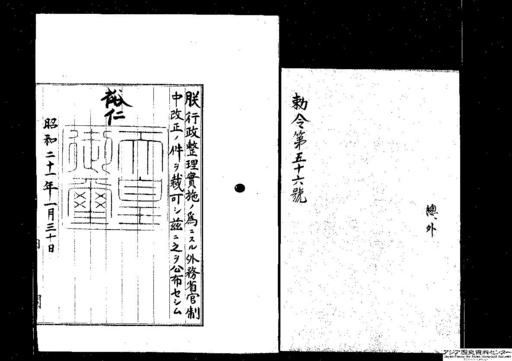 勅令第五十六號
總、外
朕行政整理實施ノ爲ニスル外務省官制
中改正ノ件ヲ裁可シ茲ニ之ヲ公布セシム
裕仁
天皇
御璽
昭和二十一年一月三十日
アジア歴史資料センター